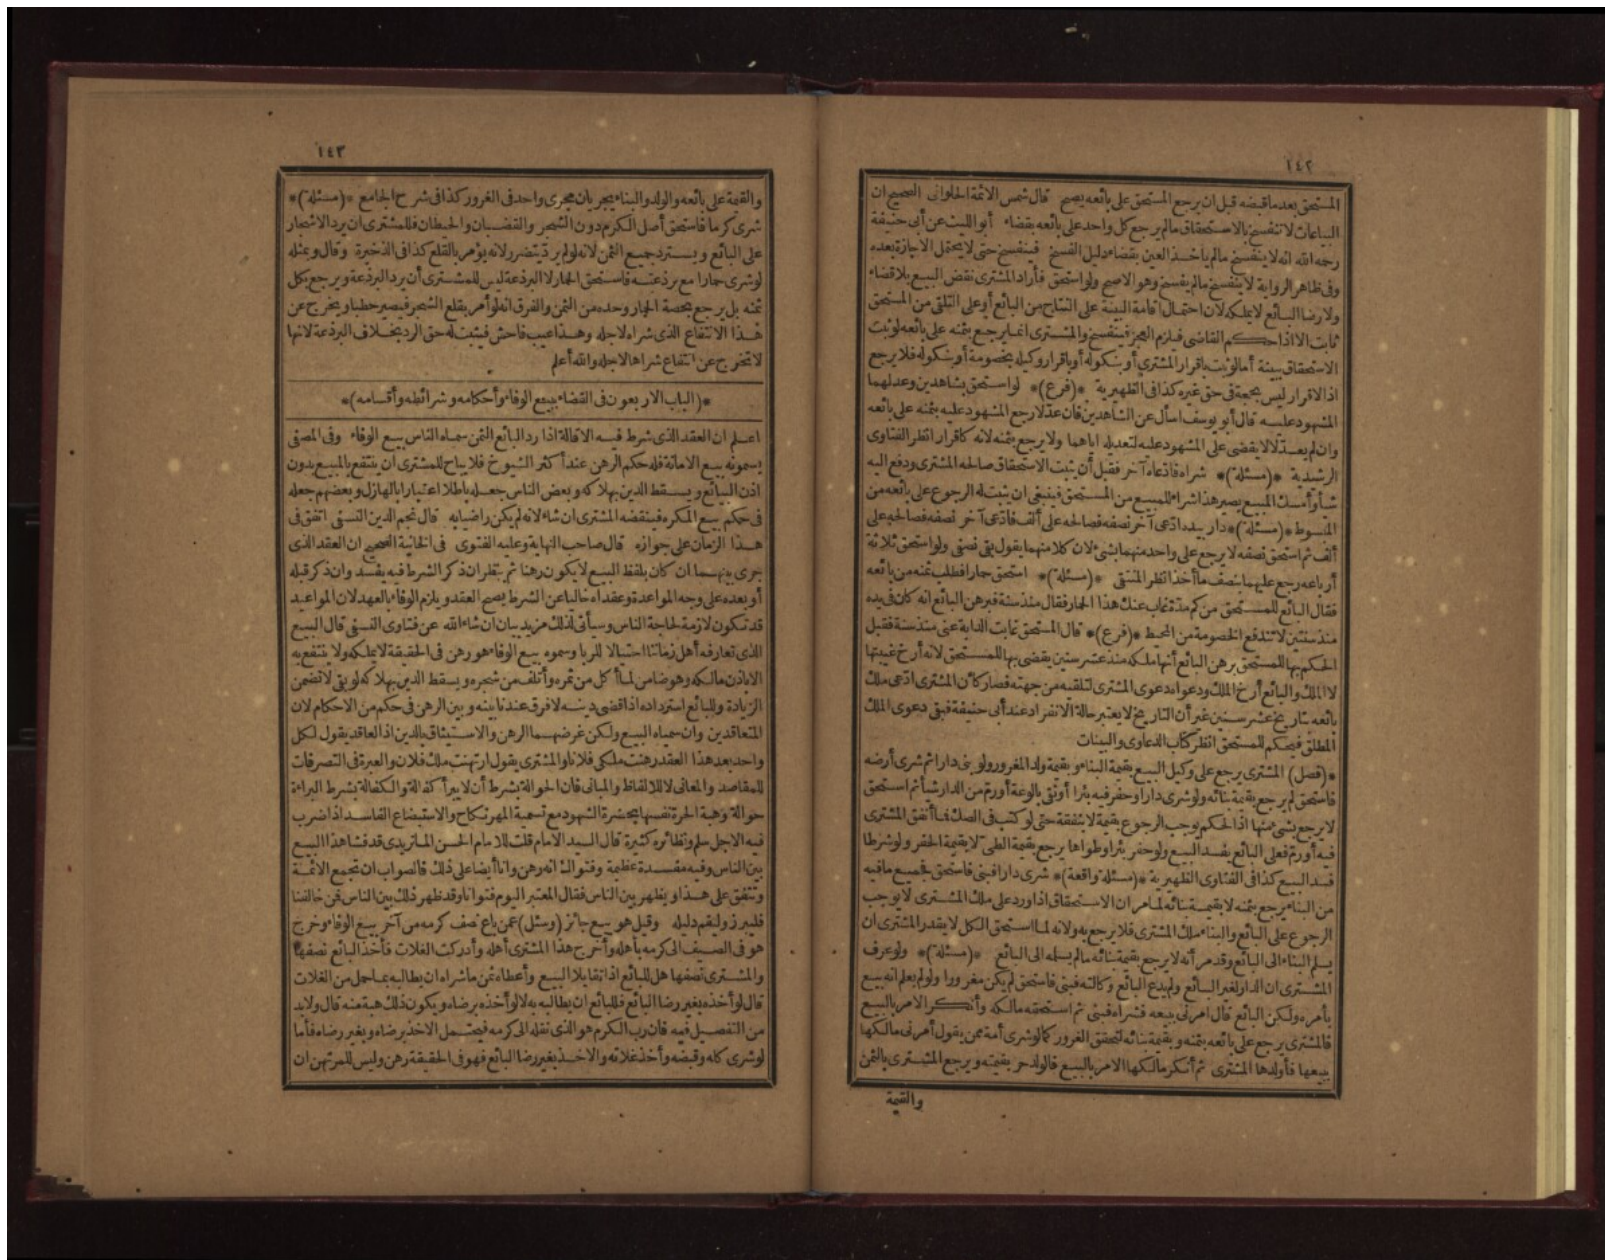 ١٤٢
المستحق بعد ما قبضه قبل ان يرجع المستحق على بائعه يصح قال شمس الائمة الحلوانى الصحيح ان
البياعات لا تنفسخ بالاستحقاق ما لم يرجع كل واحد على بائعه بقضاء أبو الليث عن أبى حنيفة
رحمه الله انه لا ينفسخ ما لم ياخذ العين بقضاء دليل الفسخ فينفسخ حتى لا يحتمل الاجازة بعده
وفى ظاهر الرواية لا ينفسخ ما لم يفسخ وهو الاصح ولو استحق فأراد المشترى نقض البيع بلا قضاء
ولا رضا البائع لا يملكه لان احتمال اقامة البينة على النتاج من البائع أو على التلقى من المستحق
ثابت الا اذا حكم القاضى فيلزم العجز فينفسخ والمشترى انما يرجع بثمنه على بائعه لو ثبت
الاستحقاق ببينة أما لو ثبت باقرار المشترى أو بنكوله أو باقرار وكيله بخصومة أو بنكوله فلا يرجع
اذ الاقرار ليس بحجة فى حق غيره كذا فى الظهيرية *(فرع)* لو استحق بشاهدين وعدلهما
المشهود عليه قال أبو يوسف اسأل عن الشاهدين فان عدلا رجع المشهود عليه بثمنه على بائعه
وان لم يعدلا لا يقضى على المشهود عليه لتعديله اياهما ولا يرجع بثمنه لانه كاقرار انظر الفتاوى
الرشيدية *(مسئلة)* شراه فادعاه آخر فقبل أن يثبت الاستحقاق صالحه المشترى ودفع اليه
شيأ وأمسك المبيع يصير هذا شراء للمبيع من المستحق فينبغى ان يثبت له الرجوع على بائعه من
المبسوط *(مسئلة)* دار بيده ادعى آخر نصفه فصالحه على ألف فادعى آخر نصفه فصالحه على
ألف ثم استحق نصفه لا يرجع على واحد منهما بشئ لان كلا منهما يقول بقى نصفى ولو استحق ثلاثة
أرباعه رجع عليهما بنصف ما أخذا انظر المنتقى *(مسئلة)* استحق حمارا فطلب ثمنه من بائعه
فقال البائع للمستحق من كم مدة غاب عنك هذا الحمار فقال منذ سنة فبرهن البائع انه كان فى يده
منذ سنتين لا تندفع الخصومة من المحيط *(فرع)* قال المستحق غابت الدابة عنى منذ سنة فقبل
الحكم بها للمستحق برهن البائع أنها ملكه منذ عشر سنين يقضى بها للمستحق لانه أرخ غيبتها
لا الملك والبائع أرخ الملك ودعواه دعوى المشترى لتلقيه من جهته فصار كأن المشترى ادعى ملك
بائعه بتاريخ عشر سنين غير أن التاريخ لا يعتبر حالة الانفراد عند أبى حنيفة فبقى دعوى الملك
المطلق فيحكم للمستحق انظر كتاب الدعاوى والبينات
*(فصل) المشترى يرجع على وكيل البيع بقيمة البناء وبقيمة ولد المغرور ولو بنى دارا ثم شرى أرضه
فاستحق لم يرجع بقيمة بنائه ولو شرى دارا وحفر فيه بئرا أو نقى بالوعة أو رم من الدار شيأ ثم استحق
لا يرجع بشئ منها اذ الحكم يوجب الرجوع بقيمة لا بنفقة حتى لو كتب فى الصك فما أنفق المشترى
فيه أو رم فعلى البائع يفسد البيع ولو حفر بئرا وطواها يرجع بقيمة الطى لا بقيمة الحفر ولو شرطا
فسد البيع كذا فى الفتاوى الظهيرية *(مسئلة واقعة)* شرى دارا فبنى فاستحق جميع ما فيه
من البناء يرجع بثمنه لا بقيمة بنائه لما مر ان الاستحقاق اذا ورد على ملك المشترى لا يوجب
الرجوع على البائع والبناء ملك المشترى فلا يرجع به ولانه لما استحق الكل لا يقدر المشترى ان
يسلم البناء الى البائع وقد مر أنه لا يرجع بقيمة بنائه ما لم يسلمه الى البائع *(مسئلة)* ولو عرف
المشترى ان الدار لغير البائع ولم يدع البائع وكالته فبنى فاستحق لم يكن مغرورا ولو لم يعلم انه بيع
بأمره ولكن البائع قال امرنى ببيعه فشراه فبنى ثم استحقه مالكه وأنكر الامر بالبيع
فالمشترى يرجع على بائعه بثمنه وبقيمة بنائه لتحقق الغرور كما لو شرى أمة ممن يقول أمرنى مالكها
ببيعها فأولدها المشترى ثم أنكر مالكها الامر بالبيع فالولد حر بقيمته ويرجع المشترى بالثمن
والقيمة
١٤٣
والقيمة على بائعه والولد والبناء يجريان مجرى واحد فى الغرور كذا فى شرح الجامع *(مسئلة)*
شرى كرما فاستحق أصل الكرم دون الشجر والقضبان والحيطان فللمشترى ان يرد الاشجار
على البائع ويسترد جميع الثمن لانه لو لم يرد يتضرر لانه يؤمر بالقلع كذا فى الذخيرة وقال وبمثله
لو شرى حمارا مع برذعته فاستحق الحمار لا البرذعة ليس للمشترى أن يرد البرذعة ويرجع بكل
ثمنه بل يرجع بحصة الحمار وحده من الثمن والفرق انه لو أمر بقلع الشجر فيصير حطبا ويخرج عن
هذا الانتفاع الذى شراه لاجله وهذا عيب فاحش فيثبت له حق الرد بخلاف البرذعة لانها
لا تخرج عن انتفاع شراها لاجله والله أعلم
*(الباب الاربعون فى القضاء ببيع الوفاء وأحكامه وشرائطه وأقسامه)*
اعلم ان العقد الذى شرط فيه الاقالة اذا رد البائع الثمن سماه الناس بيع الوفاء وفى المصفى
يسمونه بيع الامانة فله حكم الرهن عند أكثر الشيوخ فلا يباح للمشترى ان ينتفع بالمبيع بدون
اذن البائع ويسقط الدين بهلاكه وبعض الناس جعله باطلا اعتبارا بالهازل وبعضهم جعله
فى حكم بيع المكره فينقضه المشترى ان شاء لانه لم يكن راضيا به قال نجم الدين النسفى اتفق فى
هذا الزمان على جوازه قال صاحب النهاية وعليه الفتوى فى الخانية الصحيح ان العقد الذى
جرى بينهما ان كان بلفظ البيع لا يكون رهنا ثم ينظر ان ذكر الشرط فيه يفسد وان ذكر قبله
أو بعده على وجه المواعدة وعقداه خاليا عن الشرط يصح العقد ويلزم الوفاء بالعهد لان المواعيد
قد تكون لازمة لحاجة الناس وسيأتى لذلك مزيد بيان ان شاء الله عن فتاوى النسفى قال البيع
الذى تعارفه أهل زماننا احتيالا للربا وسموه بيع الوفاء هو رهن فى الحقيقة لا يملكه ولا ينتفع به
الا باذن مالكه وهو ضامن لما أكل من ثمره وأتلف من شجره ويسقط الدين بهلاكه لو بقى لا تضمن
الزيادة وللبائع استرداده اذا قضى دينه لا فرق عندنا بينه وبين الرهن فى حكم من الاحكام لان
المتعاقدين وان سمياه البيع ولكن غرضهما الرهن والاستيثاق بالدين اذ العاقد يقول لكل
واحد بعد هذا العقد رهنت ملكى فلانا والمشترى يقول ارتهنت ملك فلان والعبرة فى التصرفات
للمقاصد والمعانى لا للالفاظ والمبانى فان الحوالة بشرط أن لا يبرأ كفالة والكفالة بشرط البراءة
حوالة وهبة الحرة نفسها بحضرة الشهود مع تسمية المهر نكاح والاستصناع الفاسد اذا ضرب
فيه الاجل سلم ونظائره كثيرة قال السيد الامام قلت للامام الحسن الماتريدى قد فشا هذا البيع
بين الناس وفيه مفسدة عظيمة وفتواك انه رهن وانا أيضا على ذلك فالصواب ان تجمع الائمة
وتتفق على هذا ويظهر بين الناس فقال المعتبر اليوم فتوانا وقد ظهر ذلك بين الناس فمن خالفنا
فليبرز وليقم دليله وقيل هو بيع جائز (وسئل) عمن باع نصف كرمه من آخر بيع الوفاء وخرج
هو فى الصيف الى كرمه بأهله وأخرج هذا المشترى أهله وأدركت الغلات فأخذ البائع نصفها
والمشترى نصفها هل للبائع اذا تقايلا البيع وأعطاه ثمن ما شراه ان يطالبه بما حمل من الغلات
قال لو أخذه بغير رضا البائع فللبائع ان يطالبه به لا لو أخذه برضاه ويكون ذلك هبة منه قال ولا بد
من التفصيل فيه فان رب الكرم هو الذى نقله الى كرمه فيحتمل الاخذ برضاه وبغير رضاه فأما
لو شرى كله وقبضه وأخذ غلاته والاخذ بغير رضا البائع فهو فى الحقيقة رهن وليس للمرتهن ان